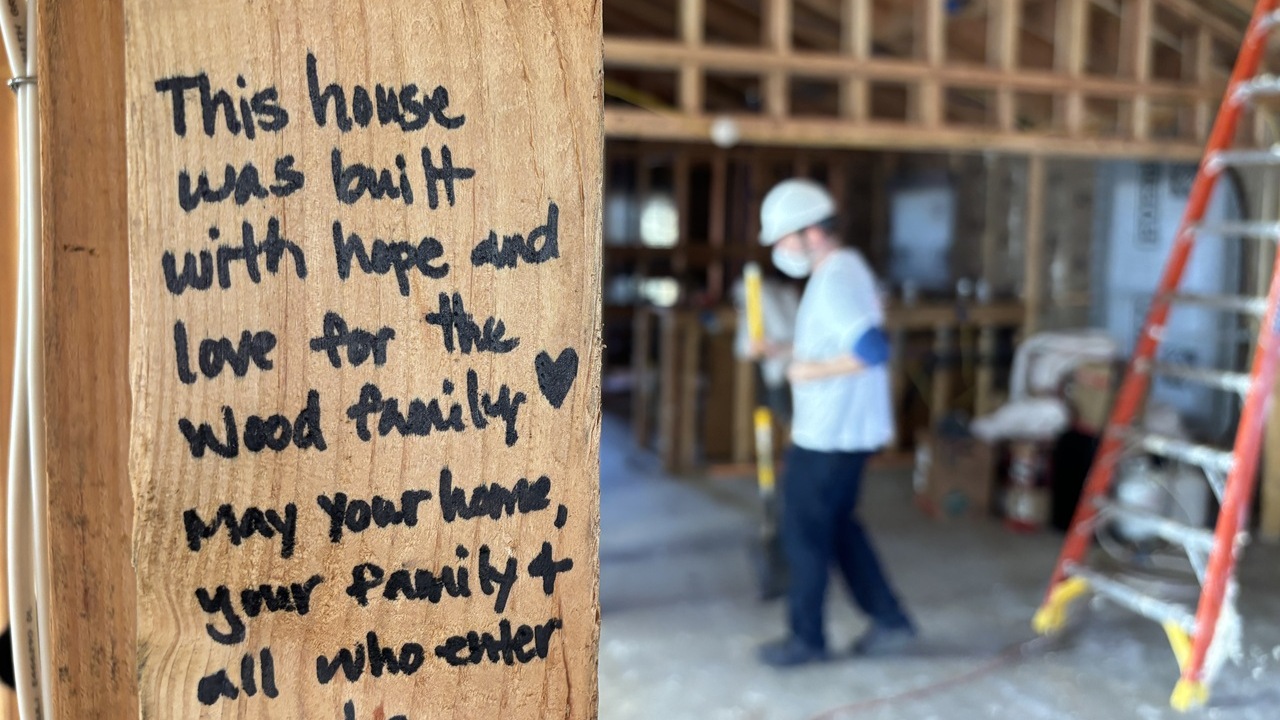 This house
was built
with hope and
love for the
Wood family ♥
May your home,
your family +
all who enter